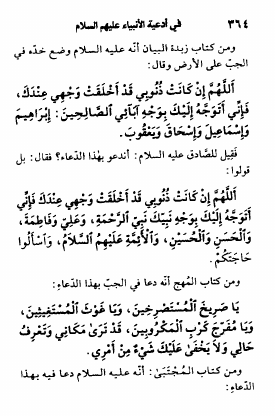 ٣٦٤ في أدعية الأنبياء عليهم السلام
ومن كتاب زبدة البيان أنّه عليه السلام وضع خدّه في
الجبّ على الأرض وقال:
اَللّٰهُمَّ إِنْ كَانَتْ ذُنُوبِي قَدْ أَخْلَقَتْ وَجْهِي عِنْدَكَ،
فَإِنِّي أَتَوَجَّهُ إِلَيْكَ بِوَجْهِ آبَائِي الصَّالِحِينَ: إِبْرَاهِيمَ
وَإِسْمَاعِيلَ وَإِسْحَاقَ وَيَعْقُوبَ.
فَقِيلَ للصَّادق عليه السلام: أندعو بهٰذا الدّعاء؟ فقال: بل
قولوا:
اَللّٰهُمَّ إِنْ كَانَتْ ذُنُوبِي قَدْ أَخْلَقَتْ وَجْهِي عِنْدَكَ فَإِنِّي
أَتَوَجَّهُ إِلَيْكَ بِوَجْهِ نَبِيِّكَ نَبِيِّ الرَّحْمَةِ، وَعَلِيٍّ وَفَاطِمَةَ،
وَالْحَسَنِ وَالْحُسَيْنِ، وَالْأَئِمَّةِ عَلَيْهِمُ السَّلَامُ، وَاسْأَلُوا
حَاجَتَكُمْ.
ومن كتاب المُهج أنّه دعا في الجبّ بهذا الدّعاءِ:
يَا صَرِيخَ الْمُسْتَصْرِخِينَ، وَيَا غَوْثَ الْمُسْتَغِيثِينَ،
وَيَا مُفَرِّجَ كَرْبِ الْمَكْرُوبِينَ، قَدْ تَرَى مَكَانِي وَتَعْرِفُ
حَالِي وَلَا يَخْفَى عَلَيْكَ شَيْءٌ مِنْ أَمْرِي.
ومن كتاب المُجْتَبَىٰ: أنّه عليه السلام دعا فيه بهذا
الدّعاءِ: